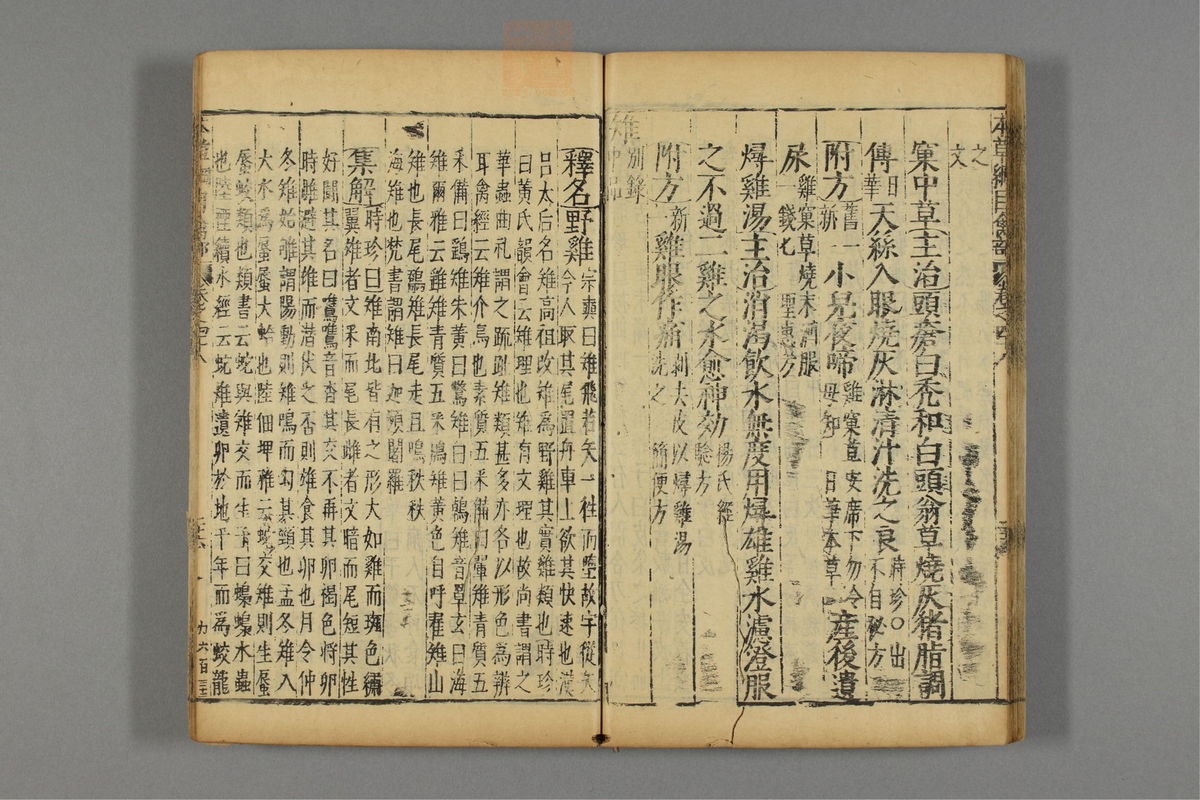 本草綱目禽部 卷之四十八
之
文
窠中草主治頭瘡白禿和白頭翁草燒灰猪脂調
傅日華天絲入眼燒灰淋清汁洗之良時珍○出不自秘方
附方舊一新小兒夜啼雞窠草安席下勿令母知日華本草產後遺
尿雞窠草燒末酒服一錢匕聖惠方
燖雞湯主治消渴飲水無度用燖雄雞水濾澄服
之不過二雞之水愈神効楊氏經驗方
附方新雞眼作痛剥去皮以燖雞湯洗之簡便方
雉別錄中品
釋名野雞宗奭曰雉飛若矢一往而墮故字從矢
今人取其尾置舟車上欲其快速也漢
呂太后名雉高祖改雉爲野雞其實雞類也時珍
曰黃氏韻會云雉理也雉有文理也故尚書謂之
華蟲曲禮謂之疏趾雉類甚多亦各以形色爲辨
耳禽經云雉介鳥也素質五采備曰翬雉青質五
采備曰鷂雉朱黃曰鷩雉白曰鵫雉音罩玄曰海
雉爾雅云鷂雉青質五采鳪雉黃色自呼翟雉山
雉也長尾鷮雉長尾走且鳴秩秩
海雉也梵書謂雉曰迦頻闍羅
集解時珍曰雉南北皆有之形大如雞而斑色繡
翼雄者文采而尾長雌者文暗而尾短其性
好鬭其名曰鷕鷕音杳其交不再其卵褐色將卵
時雌避其雄而潛伏之否則雄食其卵也月令仲
冬雉始雊謂陽動則雉鳴而勾其頸也孟冬雉入
大水爲蜃蜃大蛤也陸佃埤雅云蛇交雉則生蜃
蜃蛟類也類書云蛇與雉交而生子曰蟂蟂水蟲
也陸禋續水經云蛇雉遺卵於地千年而爲蛟龍